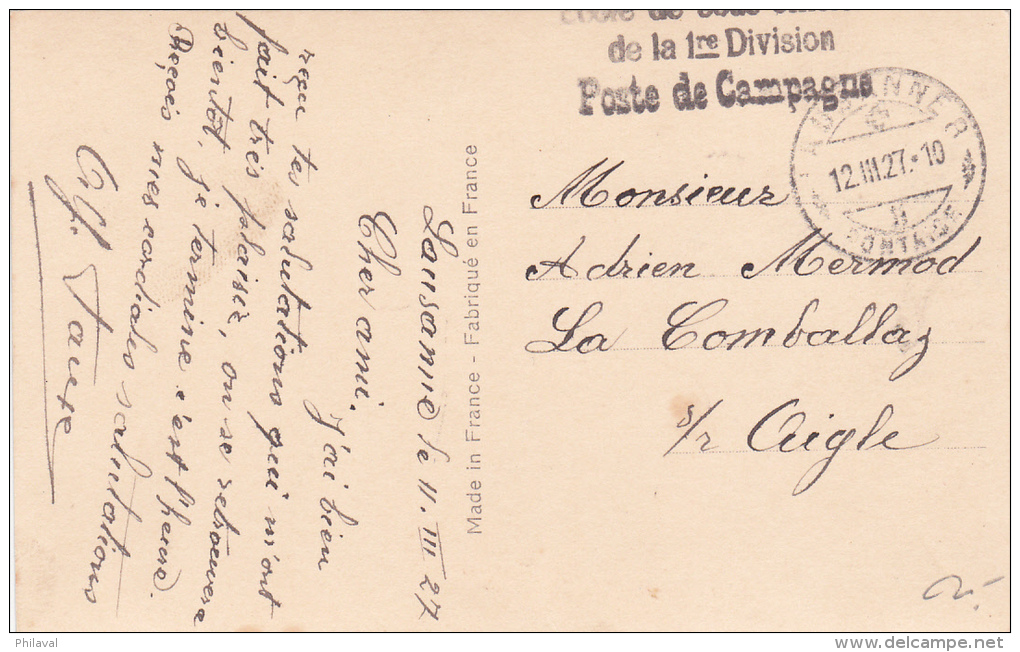 Ecole de
de la 1re Division
Poste de Campagne
LAUSANNE
12.III.27.-10
PONTAISE
Monsieur
Adrien Mermod
La Comballaz
s/r Aigle
Made in France - Fabriqué en France
Lausanne le 11. III 27
Cher ami.
J'ai bien
reçu tes salutations qui m'ont
fait très plaisir, on se retrouvera
bientôt, je termine c'est l'heure.
Reçois mes cordiales salutations
Philaval
delcampe.net